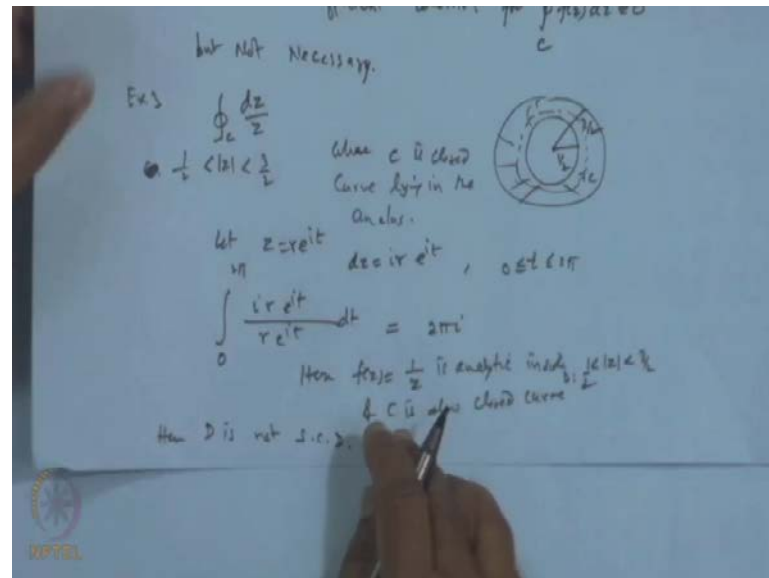 but Not Necessary.
Ex3 ∮_c dz/z
1/2 < |z| < 3/2
where c is closed
Curve lying in the
annulus.
3/2
1/2
c
Let z = re^{it} dz = ir e^{it} , 0 ≤ t < 2π
∫_0^{2π} ir e^{it} / r e^{it} dt = 2πi
Here f(z) = 1/z is analytic inside D: 1/2 < |z| < 3/2
& C is also closed curve
Here D is not s.c.D.
NPTEL